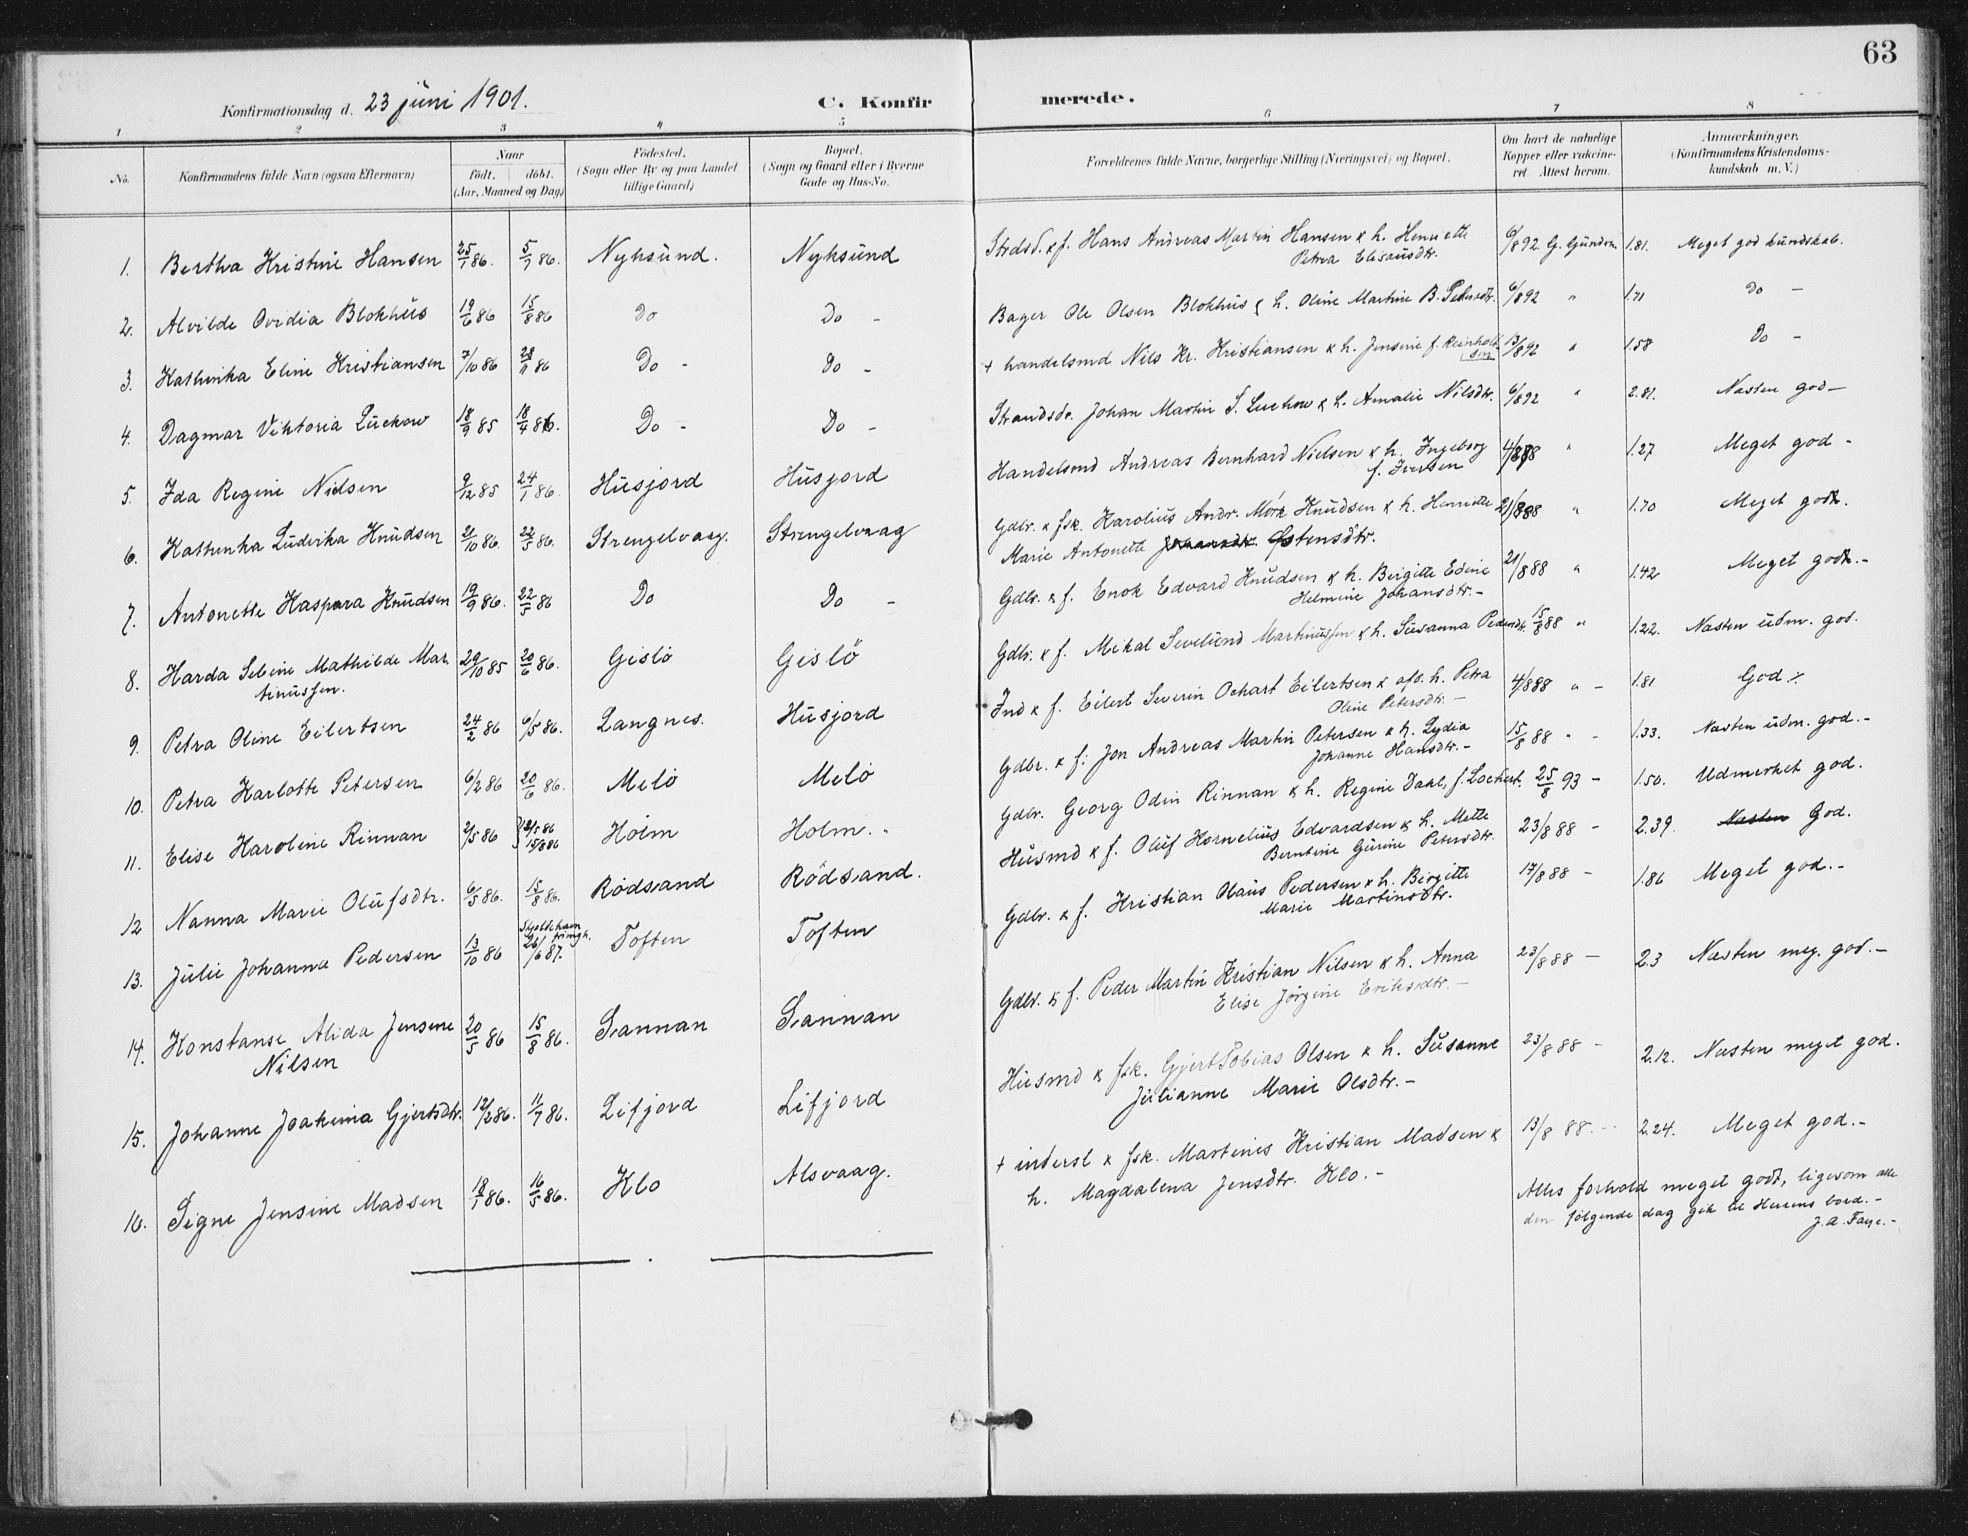 63
Konfirmationsdag d. 23 juni 1901. C. Konfir merede.
1 2 3 4 5 6 7 8
No. Konfirmandens fulde Navn (ogsaa Efternavn) Naar født. døbt. (Aar, Maaned og Dag) Födested. (Sogn eller By og paa Landet tillige Gaard) Bopæl. (Sogn og Gaard eller i Byerne Gade og Hus-No. Forældrenes fulde Navne, borgerlige Stilling (Næringsvei) og Bopæl. Om havt de naturlige Kopper eller vakcineret Attest herom. Anmærkninger. (Konfirmandens Kristendomskundskab m. V.)
1. Bertha Kristine Hansen 25/1 86. 5/7 86. Nyksund. Nyksund Strdsd. & f. Hans Andreas Martin Hansen & h. Henriette 6/8 92 G. Gundm. 1.81. Meget god kundskab.
Petrea Elisausdtr.
2. Alvilde Ovidia Blokhus 19/6 86 15/8 86 Do Do - Bager Ole Olsen Blokhus & h. Oline Martine B. Pedersdtr. 6/8 92 " 1.71 Do -
3. Kathinka Eline Kristiansen 7/10 86 28/11 86 Do - Do - + handelsmd Nils Kr. Kristiansen & h. Jensine f. Reinholdsen 13/8 92 " 1.58 Do -
4. Dagmar Viktoria Luckow 18/9 85 18/4 86. Do - Do - Strandsdr. Johan Martin S. Luckow & h. Amalie Nilsdtr. 6/8 92 " 2.81. Næsten god -
5. Ida Regine Nielsen 9/12 85 24/1 86. Husjord Husjord Handelsmd Andreas Bernhard Nielsen & h. Ingeborg 4/8 88 " 1.27 Meget god -
f. Iversen
6. Kathinka Ludvika Knudsen 2/10 86. 22/5 86. Strengelvaag. Strengelvaag Gdbr. & fsk. Karolius Andr. Mørk Knudsen & h. Henriette 21/8 88 " 1.70 Meget godt.
Marie Antonette Østensdtr.
7. Antonette Kaspara Knudsen 19/9 86. 22/5 86 Do Do - Gdbr. & f. Enok Edvard Knudsen & h. Birgitte Edine 21/8 88 " 1.42 Meget godt. -
Helmine Johansdtr. -
8. Harda Sebine Mathilde Mar- 29/10 85 20/6 86. Gislö Gislö Gdbr. & f. Mikal Sevelund Martinussen & h. Susanna Pedersdtr. 15/8 88 " 1.22. Næsten udm. god.
tinussen.
9. Petra Oline Eilertsen 24/2 86 6/5 86. Langnes. Husjord Ind & f. Eilert Severin Ochart Eilertsen & afd. h. Petra 4/8 88 " - 1.81 God
Oline Petersdtr. -
10. Petra Karlotte Petersen 6/2 86 20/6 86. Melö Melö Gdbr. & f. Jon Andreas Martin Petersen & h. Lydia 15/8 88 " - 1.33. Næsten udm. god. -
Johanne Hansdtr. -
11. Elise Karoline Rinnan 2/5 86 12/5 86 15/8 86 Holm Holm. Gdbr. Georg Odin Rinnan & h. Regine Dahl, f. Lockert. 25/8 93 - 1.50. Udmerket god.
12 Nanna Marie Olufsdtr. 6/5 86. 15/8 86. Rödsand Rödsand. Husmd & f. Oluf Kornelius Edvardsen & h. Mette 23/8 88 - 2.39. Næsten God.
Berntine Gurine Petersdtr.
13. Julie Johanna Pedersen 13/10 86 26/6 87. Toften Toften Gdbr. & f. Kristian Olaus Pedersen & h. Birgitte 17/8 88 - 1.86 Meget god. -
Marie Martinsdtr.
14. Konstanse Alida Jensine 20/5 86 15/8 86. Sannan Sannan Gdbr. & f. Peder Martin Kristian Nilsen & h. Anna 23/8 88 - 2.3 Næsten meg. god. -
Nilsen Elise Jörgine Eriksdtr. -
15. Johanne Joakima Gjertsdtr. 12/2 86. 11/7 86. Lifjord Lifjord Husmd & fsk. Gjert Tobias Olsen & h. Susanne 23/8 88 - 2.12. Næsten meget god.
Julianne Marie Olsdtr. -
16. Signe Jensine Madsen 18/1 86. 16/5 86. Klo Alsvaag. + inderst & fsk. Martinus Kristian Madsen & 13/8 88. - 2.24. Meget god. -
h. Magdalena Jensdtr. Klo. -
Alles forhold meget godt, ligesom alle
den følgende dag gik til Herrens bord. -
J. A. Faye. -